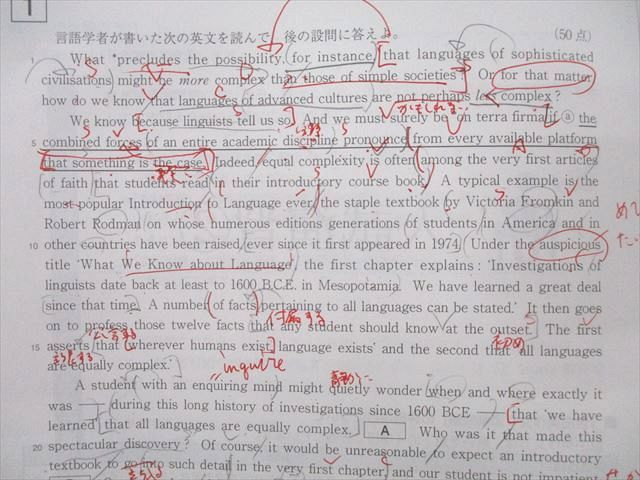 1
言語学者が書いた次の英文を読んで 後の設問に答えよ。 (50 点)
1 What *precludes the possibility, for instance, that languages of sophisticated
civilisations might be more complex than those of simple societies? Or for that matter
how do we know that languages of advanced cultures are not perhaps less complex?
We know because linguists tell us so. And we must surely be on terra firma if ⓐ the
5 combined forces of an entire academic discipline pronounce from every available platform
that something is the case. Indeed, equal complexity is often among the very first articles
of faith that students read in their introductory course book. A typical example is the
most popular Introduction to Language ever, the staple textbook by Victoria Fromkin and
Robert Rodman on whose numerous editions generations of students in America and in
10 other countries have been raised, ever since it first appeared in 1974. Under the auspicious
title 'What We Know about Language', the first chapter explains: 'Investigations of
linguists date back at least to 1600 B.C.E. in Mesopotamia. We have learned a great deal
since that time. A number of facts pertaining to all languages can be stated.' It then goes
付属する
on to profess those twelve facts that any student should know at the outset. The first
15 asserts that 'wherever humans exist, language exists' and the second that 'all languages
are equally complex.'
inquire
A student with an enquiring mind might quietly wonder when and where exactly it
was — during this long history of investigations since 1600 BCE — that 'we have
learned' that all languages are equally complex. A Who was it that made this
20 spectacular discovery? Of course, it would be unreasonable to expect an introductory
textbook to go into such detail in the very first chapter, and our student is not impatient